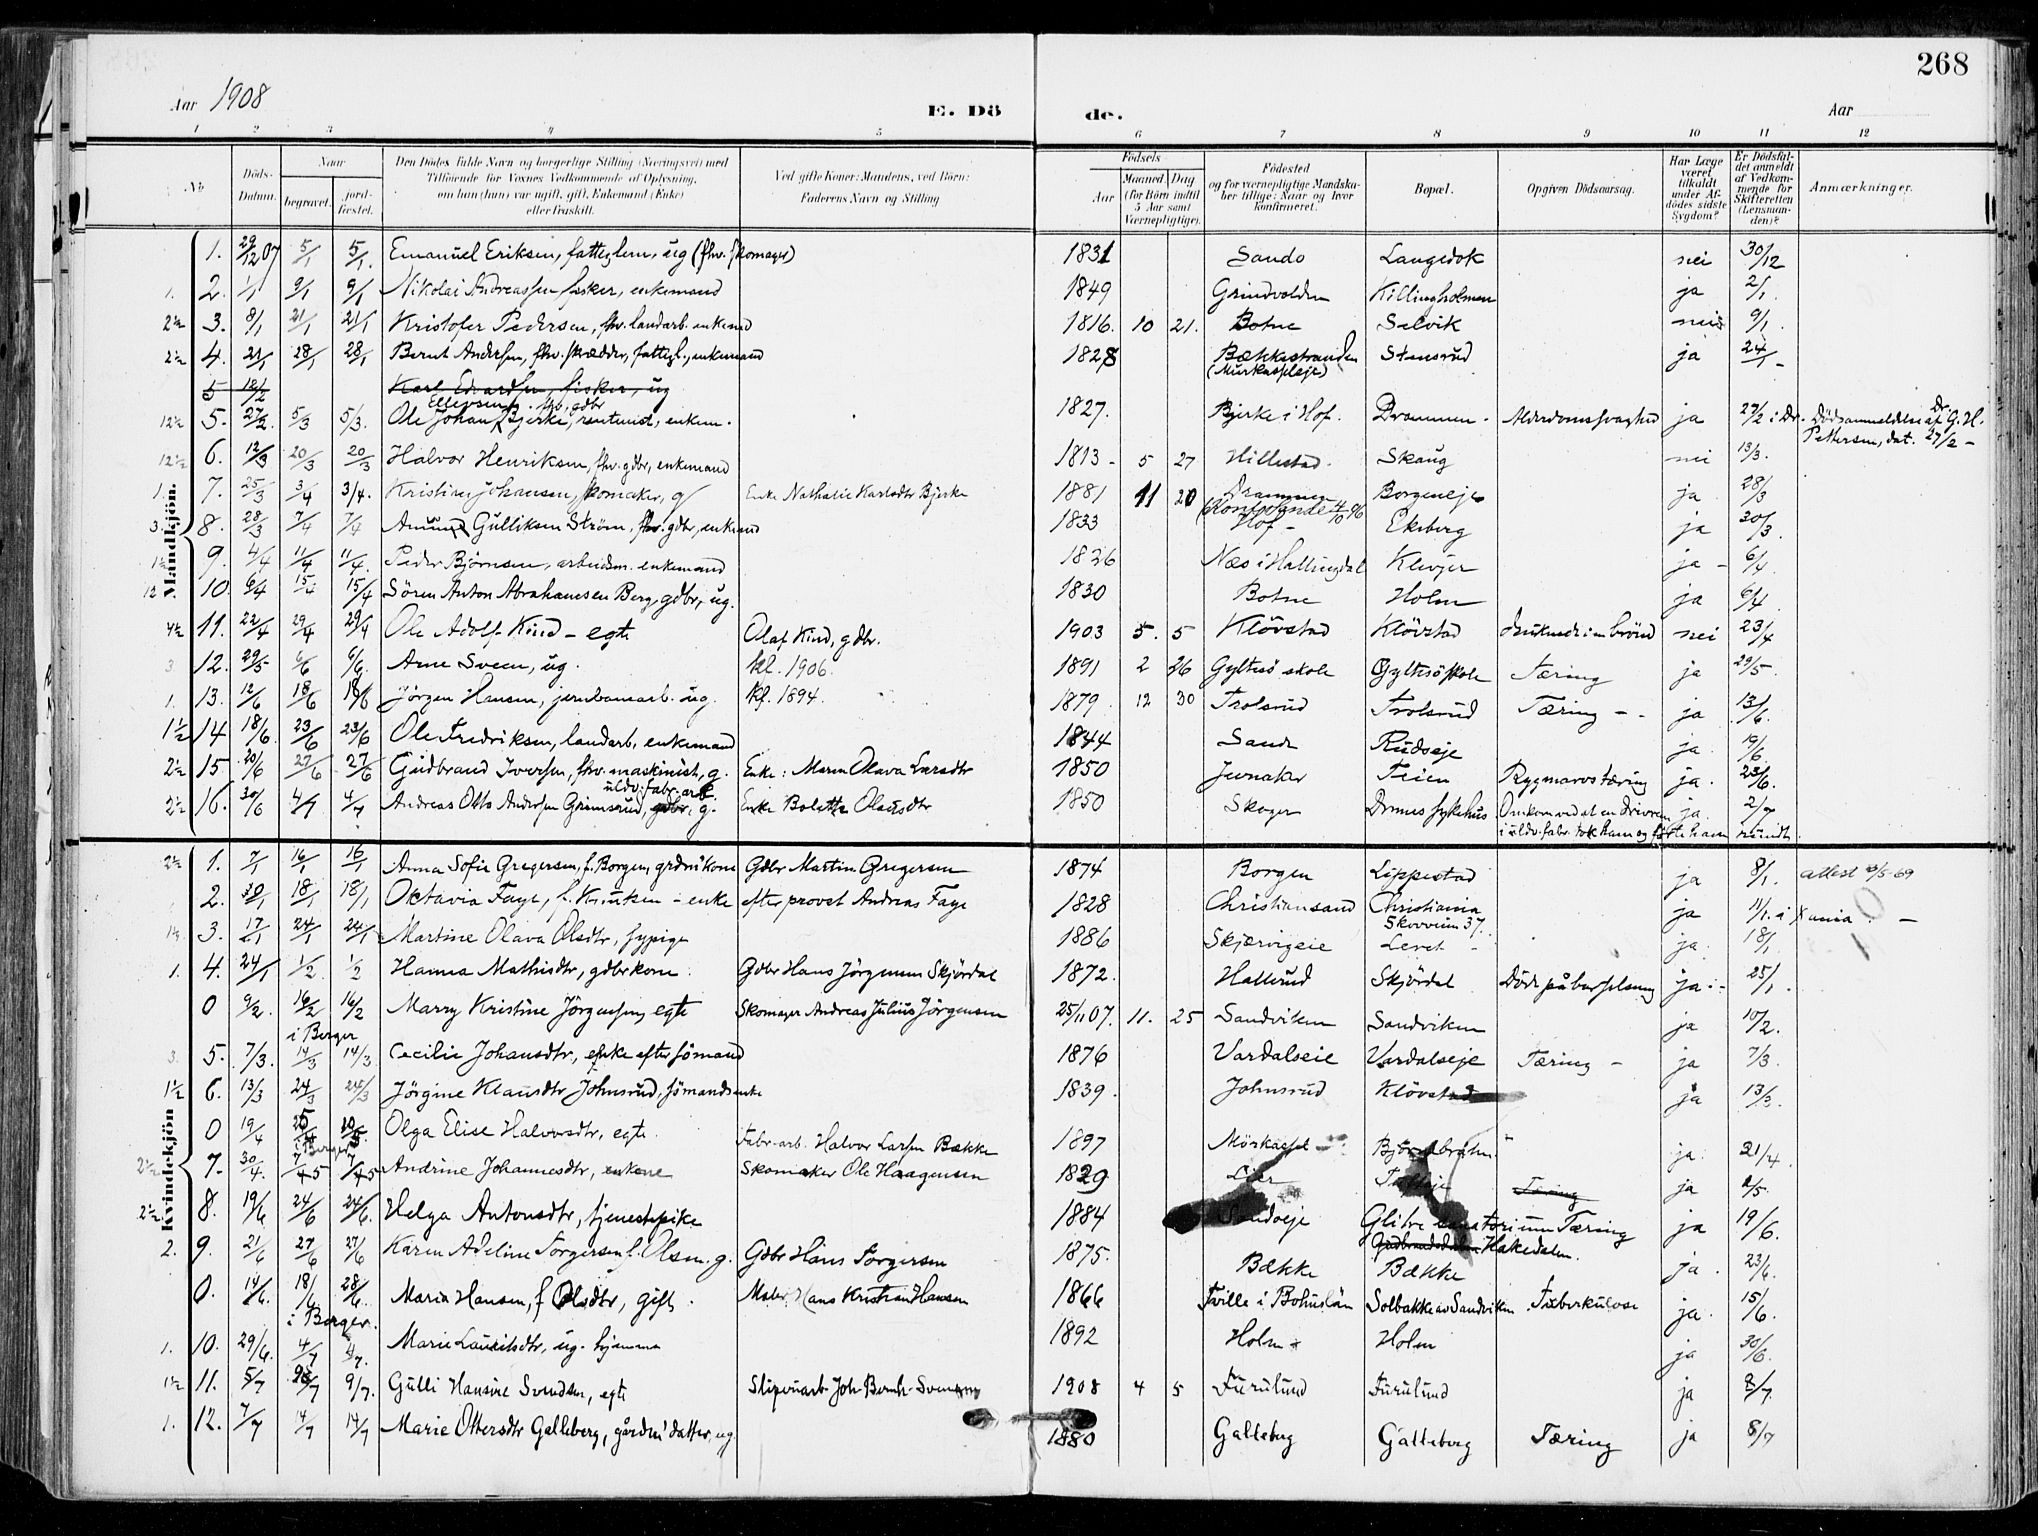 268
Aar 1908
E. Döde.
Aar
1 2 3 4 5 6 7 8 9 10 11 12
No
Döds-Datum.
Naar
begravet.
jord-fæstet.
Den Dödes fulde Navn og borgerlige Stilling (Næringsvei) med
Tilföiende for Voxnes Vedkommende af Oplysning,
om han (hun) var ugift, gift, Enkemand (Enke)
eller fraskilt.
Ved gifte Koner: Mandens, ved Börn:
Faderens Navn og Stilling
Födsels
Aar
Maaned
Dag
(for Börn indtil 5 Aar samt Værnepligtige).
Födested
og for værnepligtige Mandska-
ber tillige: Naar og hvor
konfirmeret.
Bopæl.
Opgiven Dödsaarsag.
Har Læge været tilkaldt under Af-dödes sidste Sygdom?
Er Dödsfal-det anmeldt af Vedkom-mende for Skifteretten (Lensman-den)?
Anmærkninger.
Mandkjön.
1. 29/12 07 5/1 5/1. Emanuel Eriksen, fattiglem, ug (fhv. skomager) 1831 Sando Langedok nei 30/12
1. 2. 1/1 9/1 9/1 Nikolai Andreassen fisker, enkemand 1849 Grindvolden Killingholmen ja 2/1.
2½ 3. 8/1 21/1 21/1 Kristofer Pedersen, fhv. landarb. enkemd 1816. 10 21. Botne Selvik nei 9/1.
2½ 4. 21/1 28/1 28/1 Bernt Andersen, fhv. skrædder, fattigl., enkemand 1828 Bækkestranden (Murkasplejr) Stensrud ja 24/1 -
5 18/2 Karl Edvardsen, fisker, ug
12½ 5. 27/2. 5/3 5/3. Ole Johan Ellevsen Bjerke, fhv. gdbr, rentenist, enkem. 1827. Bjerke i Hof. Drammen. Alderdomssvaghed ja 27/2 i Dr. Dödsanmeldelse af Dr. G. H. Pettersen, dat. 27/2 -
12½ 6. 12/3 20/3 20/3 Halvor Henriksen, fhv. gdbr, enkemand 1813 - 5 27 Hillestad. Skaug nei 13/3.
1. 7. 25/3 3/4 3/4. Kristian Johansen, skomaker, g Enke Nathalie Karlsdtr Bjerke 1881 11 20 Drammen Borgeneje ja 28/3
3. 8. 28/3 7/4 7/4 Amund Gulliksen Ström, fhv. gdbr, enkemd 1833 Hof - Ekeberg ja 30/3.
1½ 9. 4/4 11/4 11/4. Peder Björnsen, arbeidsm. enkemand 1826 Næs i Hallingdal Klevjer ja - 6/4
12 10. 6/4 15/4 15/4 Sören Anton Abrahamsen Berg, gdbr, ug. 1830 Botne Holm ja 6/4.
4½ 11. 22/4 29/4 29/4 Ole Adolf Kind - egte Olaf Kind, gdbr. 1903 5. 5 Klövstad Klövstad druknede i en brönd nei 23/4
3 12. 29/5 6/6 6/6. Arne Sveen, ug. kf. 1906. 1891 2 26 Gyltesö skole Gyltesö skole Tæring ja 29/5.
1. 13. 12/6 18/6 18/6 Jörgen Hansen, jernbanearb. ug. kf. 1894. 1879. 12 30 Trolsrud Trolsrud Tæring - - ja 13/6.
1½ 14 18/6. 23/6 23/6 Ole Fredriksen, landarb. enkemand 1844 Sande Rudseje ja 19/6.
2½ 15 20/6 27/6 27/6 Gudbrand Iversen, fhv. maskinist, g. Enke: Maren Olava Larsdtr 1850 Jevnaker Teien Rygmarvstæring ja. 23/6.
2½ 16. 30/6 4/7 4/7 Andreas Otto Andersen Grimsrud, uldv. fabr. arb. gdbr, g. Enke Bolette Olausdtr 1850 Skoger Drmns sykehus Omkom ved at en drivrem i uldv. fabr. tok ham og förte ham rundt ja. 2/7
Kvindekjön
2½ 1. 7/1 16/1 16/1 Anna Sofie Gregersen, f. Borgen, grdmkone Gdbr Martin Gregersen 1874 Borgen Lippestad ja 8/1. attest 13/5-69
2. 10/1 18/1 18/1 Oktavia Faye, f. Knutzen - enke efter provst Andreas Faye 1828 Christiansand Christiania Skovveien 37. ja 11/1. i Xania -
1½ 3. 17/1 24/1 24/1 Martine Olava Olsdtr, sypige 1886 Skjærvigeie Leret - ja 18/1
1. 4. 24/1 1/2. 1/2 Hanna Mathisdtr, gdbrkone Gdbr Hans Jörgensen Skjördal 1872. Hallerud Skjördal Döde på barselseng ja - 25/1.
0 9/2. 16/2 16/2 Marry Kristine Jörgensen, egte Skomager Andreas Julius Jörgensen 25/11 07. 11. 25 Sandviken Sandviken ja 10/2.
i Berger
3. 5. 7/3. 14/3 14/3 Cecilie Johansdtr, enke efter sömand 1876 Vardalseie Vardalseje Tæring - ja 7/3
1½ 6. 13/3 24/3 24/3 Jörgine Klausdtr Johnsrud, sömandsenke 1839. Johnsrud Klövstad ja 13/3.
0 19/4 Olga Elise Halvorsdtr, egte Fabr-arb. Halvor Larsen Bække 1897 Mörkaspl Björnebråten ja 21/4.
i Berger
2½ 7. 30/4. 7/5 7/5 Andrine Johannesdtr, enkene Skomaker Ole Haagensen 1829 Lier Tæring ja 2/5.
2½ 8. 19/6 24/6 24/6. Helga Antonsdtr, tjenestepike 1884 Sandseje Glitre sanatorium Hakedalen. Tæring ja 19/6.
2. 9. 21/6 27/6 27/6 Karen Adeline Torgersen f. Olsen. g. Gdbr Hans Torgersen 1875. Bække Bække ja 23/6.
0. 14/6. 18/6 28/6. Maria Hansen, f Olsdtr, gift. Maler Hans Kristian Hansen 1866 Tville i Bohuslän Solbakke av Sandviken Tuberkulose ja. 15/6.
i Berger.
1. 10. 29/6. 4/7 4/7. Marie Lauritsdtr, ug. hjemme 1892 Holm - Holm ja 30/6.
1½ 11. 5/7 9/7. Gulli Hansine Svendsen, egte Sliperiarb. Joh. Bernh. Svendsen 1908 4 5 Furulund Furulund ja 8/7.
1. 12. 7/7 14/7 14/7 Marie Ottersdtr Galleberg, gårdm. datter, ug. 1880 Galleberg Galleberg Tæring ja 8/7